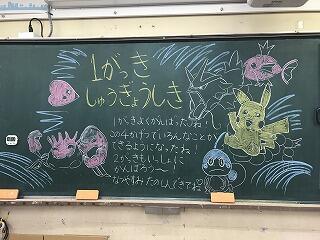 1がっき
しゅうぎょうしき
1がっきよくがんばったね!
この4かげつでいろんなことが
できるようになったね!
2がっきもいっしょに
がんばろう〜!
なつやすみたのしんできてね♡